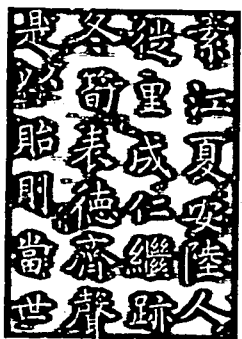 素江夏安陸人
徙里成仁繼跡
冬筍表德齊聲
是以貽則當世